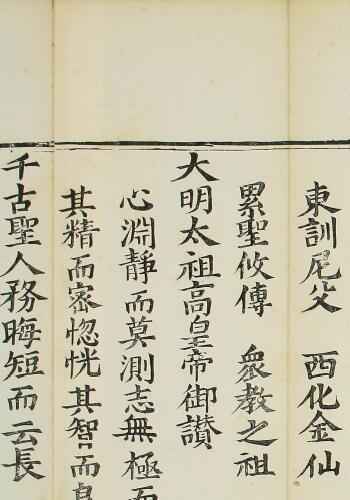 東訓尼父 西化金仙
累聖攸傳 衆教之祖
大明太祖高皇帝御讚
心淵靜而莫測志無極而
其精而密惚恍其智而
千古聖人務晦短而云長